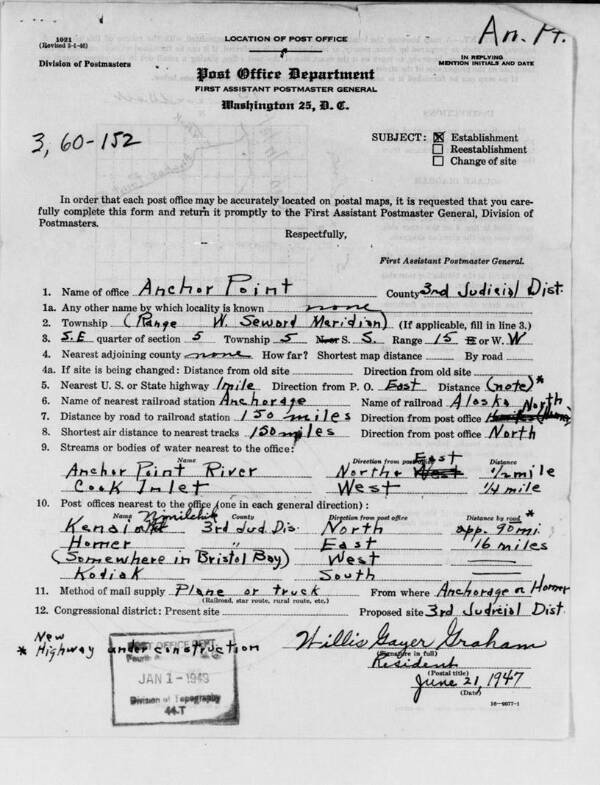 1021
(Revised 3-1-46)
LOCATION OF POST OFFICE
An. Pt.
Division of Postmasters
IN REPLYING
MENTION INITIALS AND DATE
Post Office Department
FIRST ASSISTANT POSTMASTER GENERAL
Washington 25, D. C.
3, 60-152
SUBJECT: ☒ Establishment
☐ Reestablishment
☐ Change of site
In order that each post office may be accurately located on postal maps, it is requested that you care-
fully complete this form and return it promptly to the First Assistant Postmaster General, Division of
Postmasters.
Respectfully,
First Assistant Postmaster General.
1. Name of office Anchor Point County 3rd Judicial Dist.
1a. Any other name by which locality is known none
2. Township (Range W. Seward Meridian) (If applicable, fill in line 3.)
3. S.E quarter of section 5 Township 5 S. S. Range 15 E or W. W
4. Nearest adjoining county none How far? Shortest map distance By road
4a. If site is being changed: Distance from old site Direction from old site
5. Nearest U. S. or State highway 1 mile Direction from P. O. East Distance (note)*
6. Name of nearest railroad station Anchorage Name of railroad Alaska
7. Distance by road to railroad station 150 miles Direction from post office North
8. Shortest air distance to nearest tracks 150 miles Direction from post office North
9. Streams or bodies of water nearest to the office:
Name Direction from post office Distance
Anchor Point River North East 1/2 mile
Cook Inlet West 1/4 mile
10. Post offices nearest to the office (one in each general direction):
Name County Direction from post office Distance by road *
Ninilchik
Kenai 3rd Jud. Dis. North app. 90 mi.
Homer " East 16 miles
(Somewhere in Bristol Bay) West
Kodiak South
11. Method of mail supply Plane or truck From where Anchorage or Homer
(Railroad, star route, rural route, etc.)
12. Congressional district: Present site Proposed site 3rd Judicial Dist.
New
* Highway under construction
Willis Gayer Graham
(Signature in full)
Resident
(Postal title)
June 21, 1947
(Date)
POST OFFICE DEPT
JAN 1-1949
Division of Topography
44-T
16-9077-1